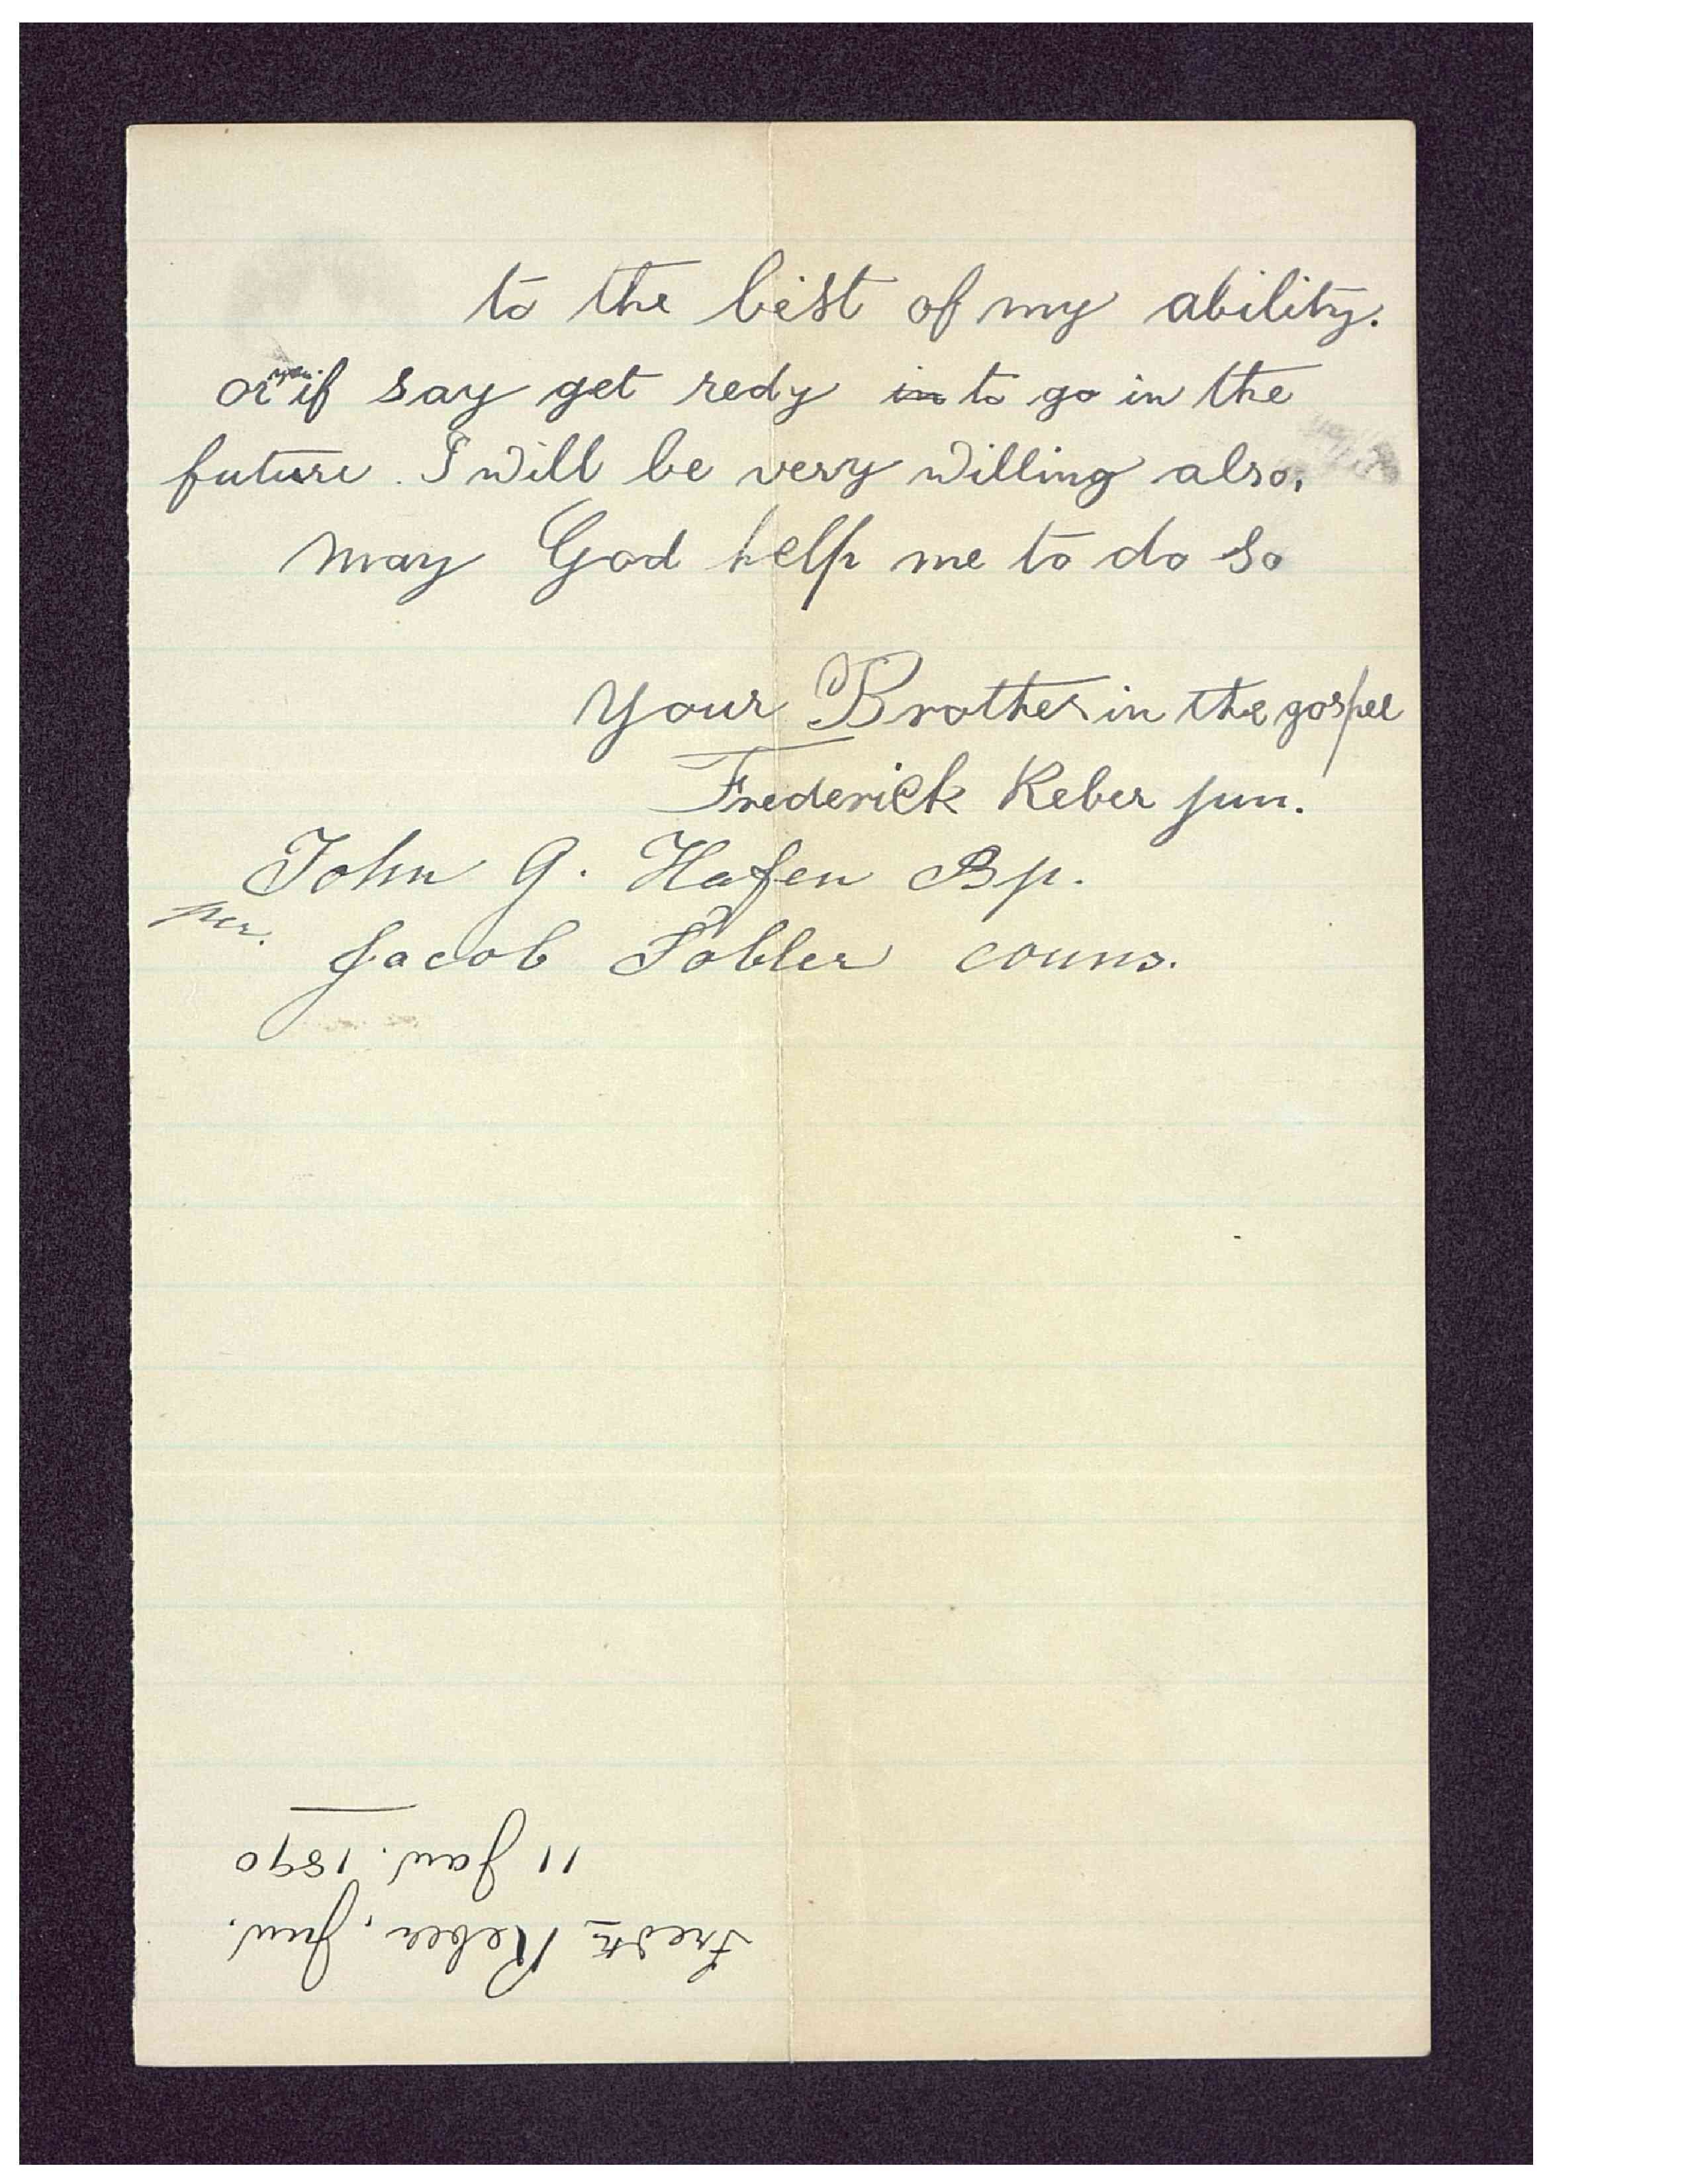 to the best of my ability.
or you if say get redy in to go in the
future. I will be very willing also,
may God help me to do so
Your Brother in the gospel
Frederick Reber jun.
John G. Hafen Bp.
per. Jacob Tobler couns.
Fredk Reber, Jun.
11 Jan. 1890